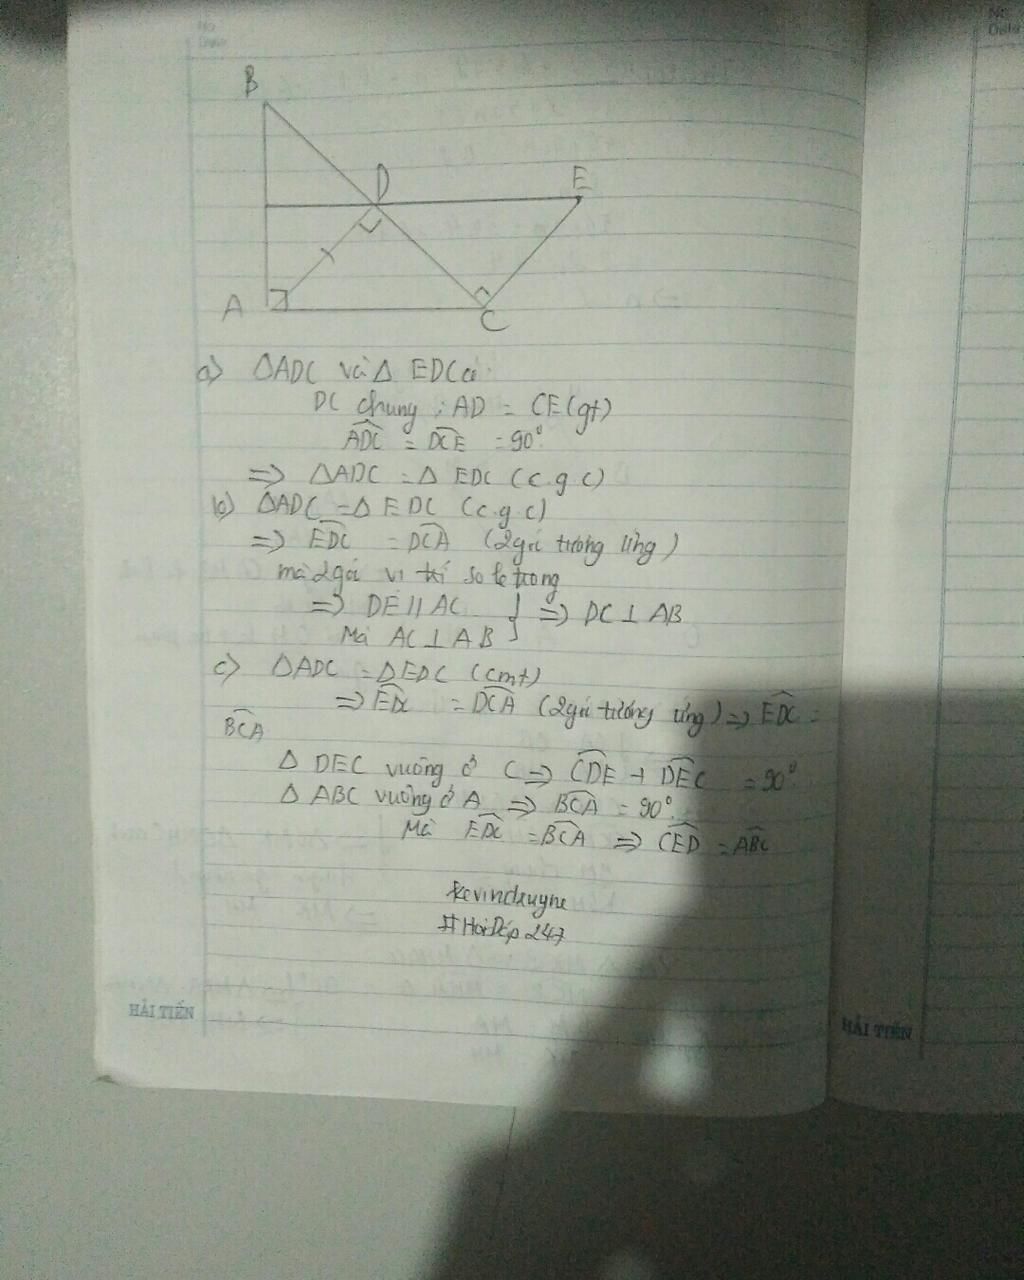 No
Date
B
D
E
A
C
a) ΔADC và Δ EDC có:
DC chung ; AD = CE (gt)
ADC = DCE = 90°
=> ΔADC = Δ EDC (c.g.c)
b) ΔADC = Δ EDC (c.g.c)
=> EDC = DCA (2 góc tương ứng)
mà 2 góc vị trí so le trong
=> DE // AC } => DC ⊥ AB
Mà AC ⊥ AB
c) ΔADC = ΔEDC (cmt)
=> EDC = DCA (2 góc tương ứng) => EDC =
BCA
Δ DEC vuông ở C => CDE + DEC = 90°
Δ ABC vuông ở A => BCA = 90°
Mà EDC = BCA => CED = ABC
#HoiDap247
HẢI TIẾN
No
Date
HẢI TIẾN